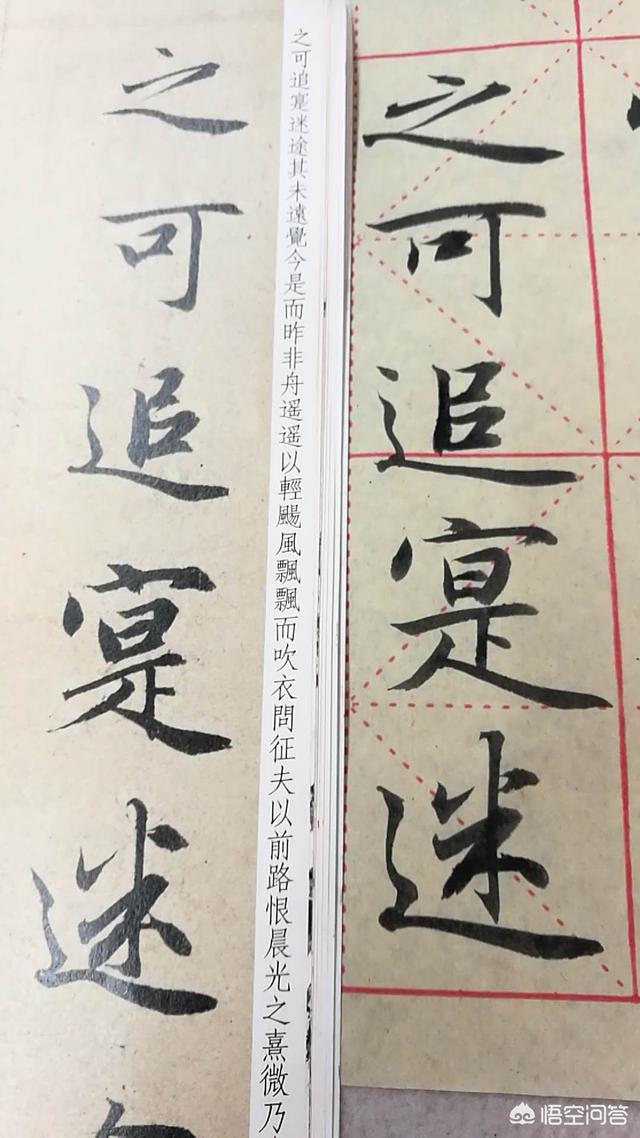 之可追寔迷
之可追寔迷途其未遠覺今是而昨非舟遥遥以輕颺風飄飄而吹衣問征夫以前路恨晨光之熹微乃
之可追寔迷
悟空问答